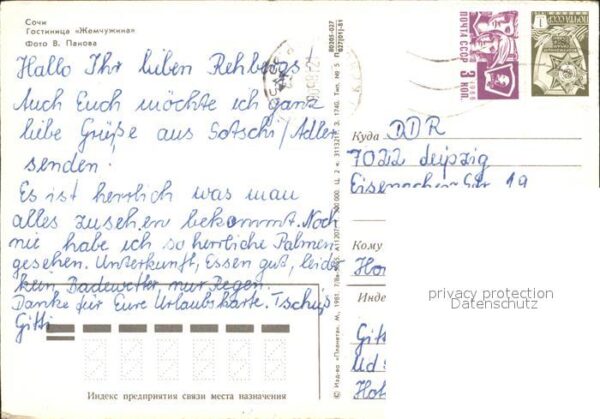 Сочи
Гостиница «Жемчужина»
Фото В. Панова
Hallo Ihr lieben Rehbergs!
Auch Euch möchte ich ganz
liebe Grüße aus Sotschi/Adler
senden.
Es ist herrlich was man
alles zusehen bekommt. Noch
nie habe ich so herrliche Palmen
gesehen. Unterkunft, Essen gut, leider
kein Badewetter, nur Regen.
Danke für Eure Urlaubskarte. Tschüß
Gitti
Индекс предприятия связи места назначения
© Изд-во «Планета». М., 1981.
ПОЧТА СССР
3 КОП.
ПОЧТА СССР
1
Куда DDR
7022 Leipzig
Eisenacher Str 19
Кому
Инде
Gitt
Hot
privacy protection
Datenschutz